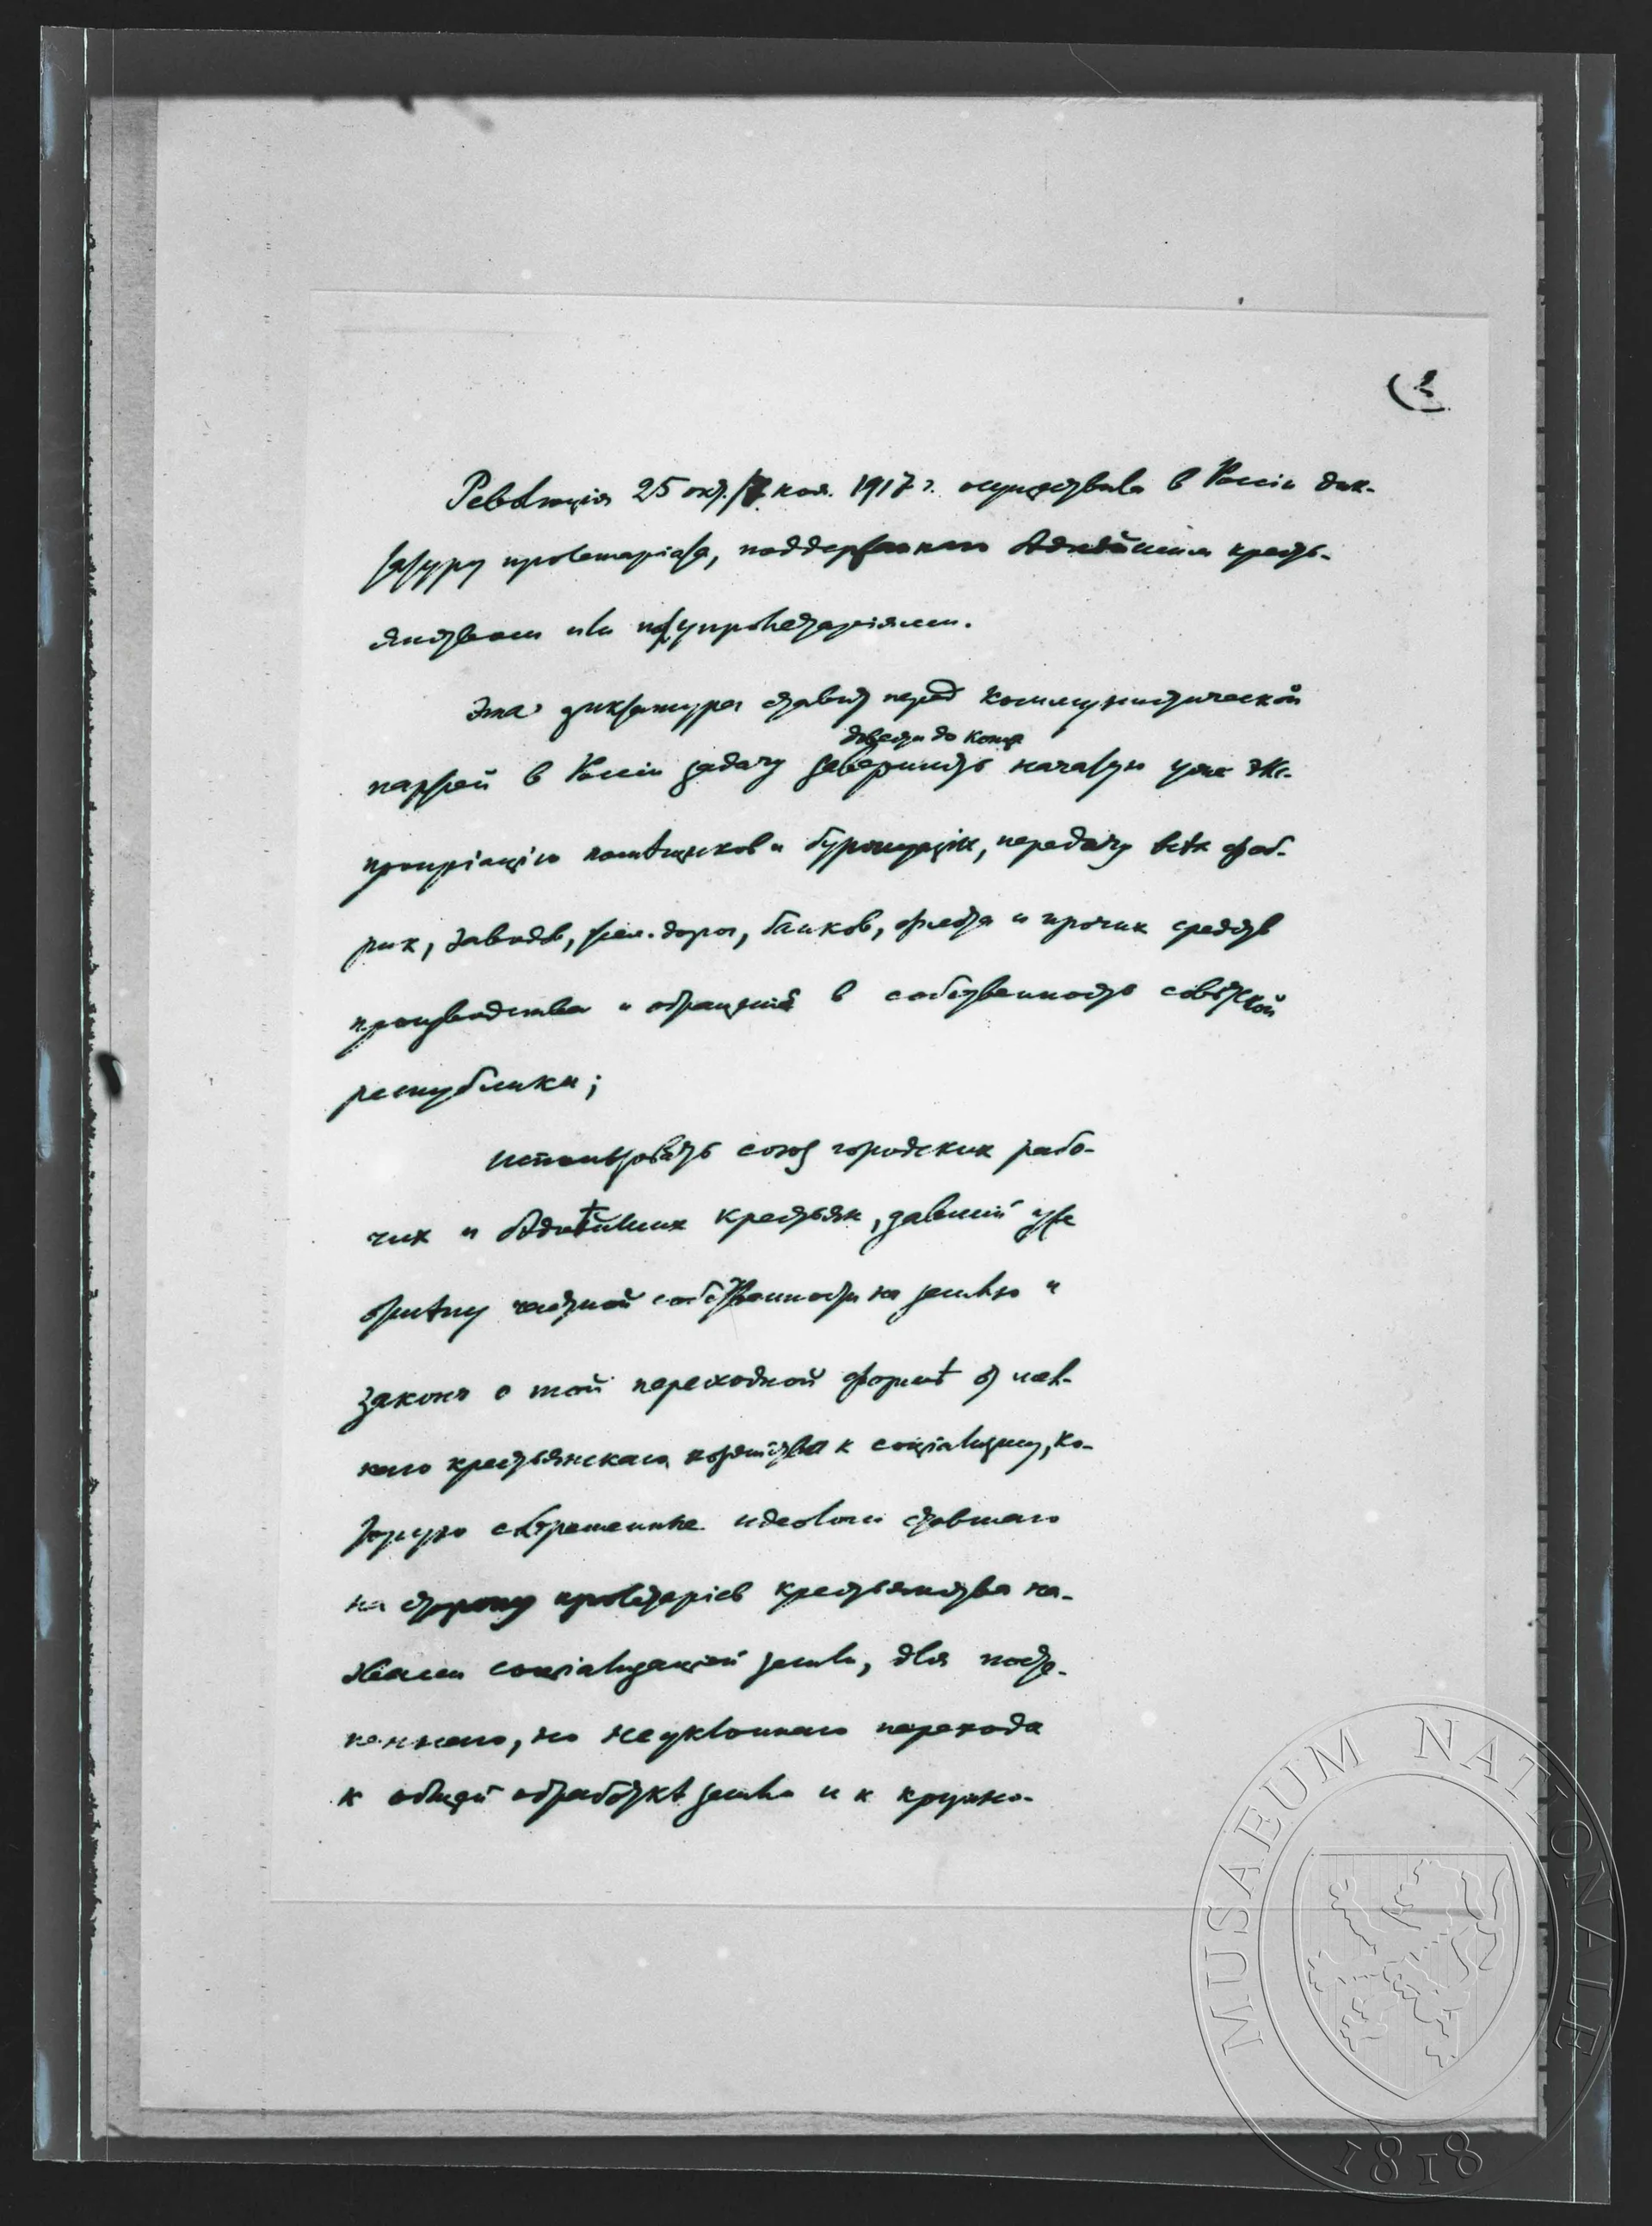 3
Революція 25 окт./7 ноя. 1917 г. осуществила в Россіи дик-
татуру пролетаріата, поддержанного бѣднѣйшим кресть-
янством или полупролетаріями.
Эта диктатура ставит перед коммунистической
довести до конца
партіей в Россіи задачу завершить начатую уже экс-
пропріацію помѣщиков и буржуазіи, передачу всѣх фаб-
рик, заводов, жел. дорог, банков, флота и прочих средств
производства и обращенія в собственность совѣтской
республики;
использовать союз городских рабо-
чих и бѣднѣйших крестьян, давшій уже
отмѣну частной собственности на землю и
закон о той переходной формѣ от мел-
каго крестьянскаго хозяйства к соціализму, ко-
торую современные идеологи ставшаго
на сторону пролетаріев крестьянства на-
звали соціализаціей земли, для посте-
пеннаго, но неуклоннаго перехода
к общей обработкѣ земли и к крупно-
MUSAEUM NATIONALE
1818